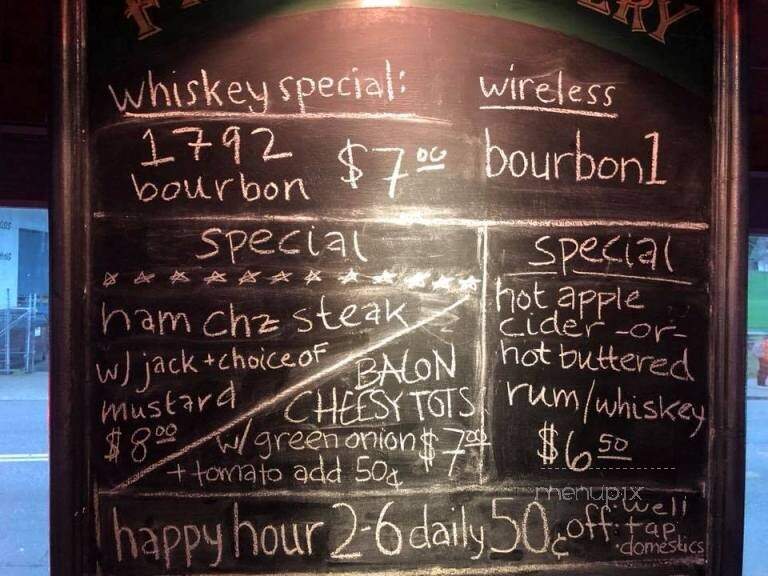 whiskey special:
1792
bourbon
$7.00
wireless
bourbon1
special
ham chz steak
w/ jack + choice of
mustard
$8.00
BACON
CHEESY TOTS
w/ green onion $7.00
+ tomato add 50¢
special
hot apple
cider -or-
hot buttered
rum/whiskey
$6.50
menupix
happy hour 2-6 daily 50¢ off: well
tap
domestics